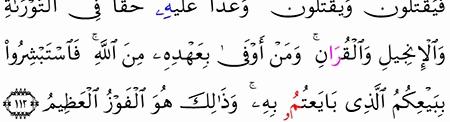 فَيَقْتُلُونَ وَيُقْتَلُونَ وَعْدًا عَلَيْهِۦ حَقًّا فِى ٱلتَّوْرَىٰةِ
وَٱلْإِنجِيلِ وَٱلْقُرَانِ ۚ وَمَنْ أَوْفَىٰ بِعَهْدِهِۦ مِنَ ٱللَّهِ ۚ فَٱسْتَبْشِرُوا۟
بِبَيْعِكُمُ ٱلَّذِى بَايَعْتُمُۥ بِهِۦ ۚ وَذَٰلِكَ هُوَ ٱلْفَوْزُ ٱلْعَظِيمُ ١١٢